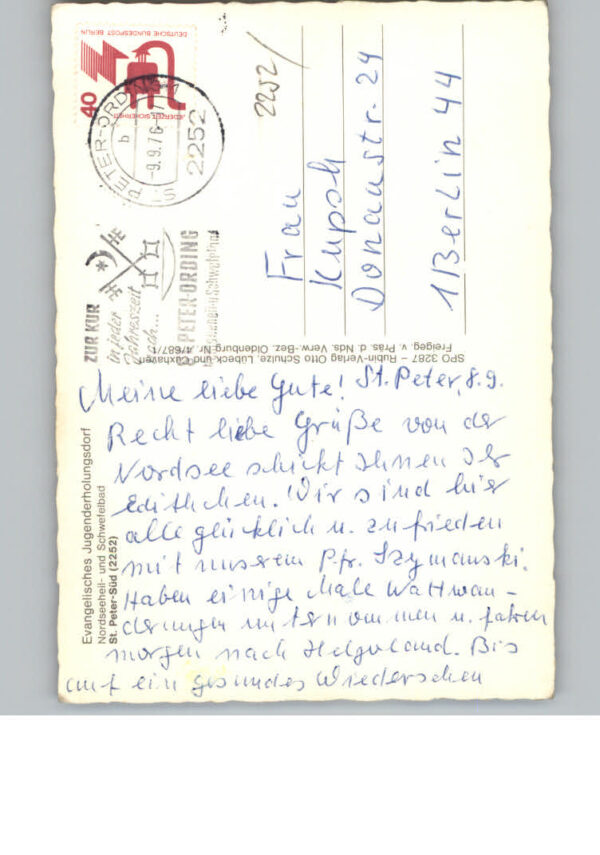 Meine liebe Gute! St. Peter, 8.9.
Recht liebe Grüße von der
Nordsee schickt Ihnen Ihr
Edithchen. Wir sind hier
alle glücklich u. zufrieden
mit unserem Pfr. Szymanski.
Haben einige Male Wattwan-
derungen unternommen u. fahren
morgen nach Helgoland. Bis
auf ein gesundes Wiedersehen
Evangelisches Jugenderholungsdorf
Nordseeheil- und Schwefelbad
St. Peter-Süd (2252)
SPO 3287 – Rubin-Verlag Otto Schulze, Lübeck und Cuxhaven
Freigeg. v. Präs. d. Nds. Verw.-Bez. Oldenburg Nr. 47687/1
2252/
Frau
Kupsch
Donaustr. 24
1 Berlin 44
DEUTSCHE BUNDESPOST BERLIN
JEDERZEIT SICHERHEIT
40
ST. PETER-ORDING 1
b
-9.9.76-
2252
ZUR KUR
in jeder
Jahreszeit
nach...
ST. PETER-ORDING